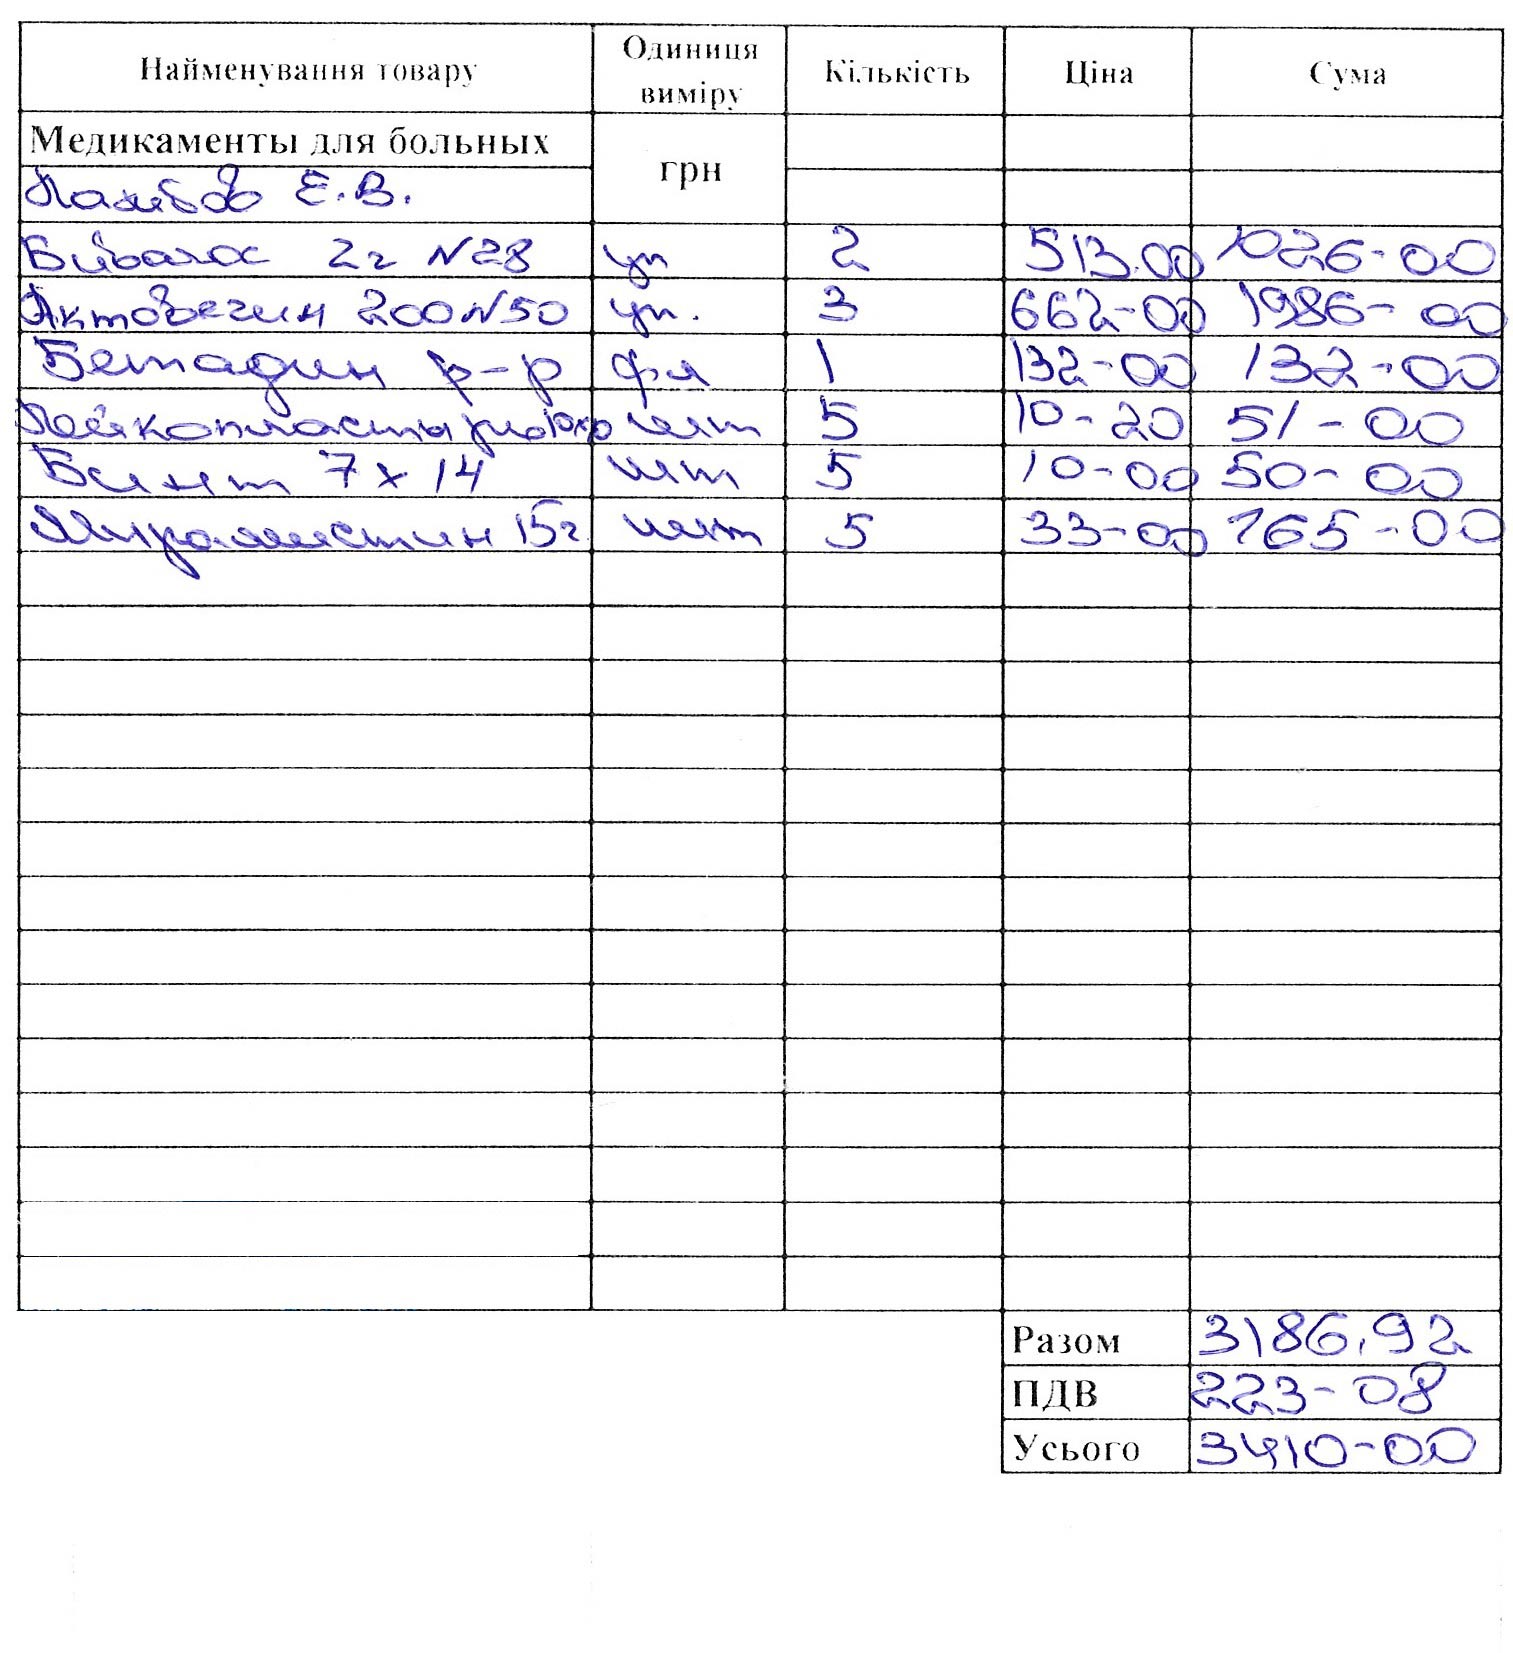 Найменування товару Одиниця виміру Кількість Ціна Сума
Медикаменты для больных грн
Е.В.
2г N28 уп 2 513.00 1026-00
Актовегин 200 N50 уп. 3 662-00 1986-00
Бетадин р-р фл 1 132-00 132-00
Лейкопластырь шт 5 10-20 51-00
Бинт 7х14 шт 5 10-00 50-00
Мирамистин 15г шт 5 33-00 165-00
Разом 3186,92
ПДВ 223-08
Усього 3410-00